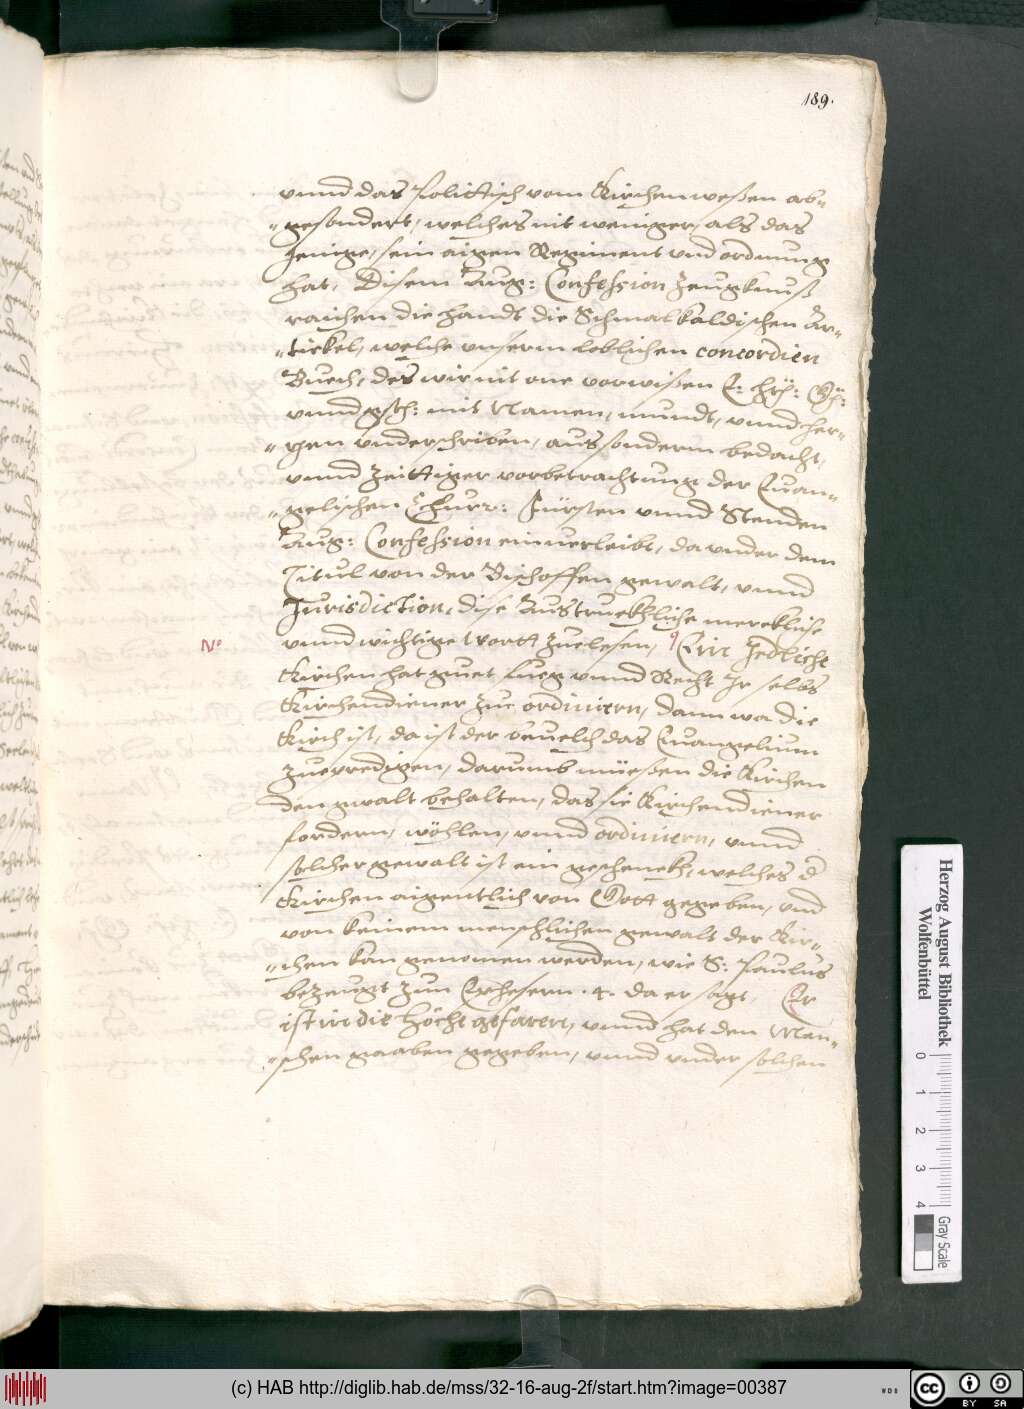 189.
vnnd das Polittisch vom Kirchenweßen ab-
gesondert, welches nit weniger, als das
Jenige, sein aigen Regiment vnd ordnung
hat, Disem Aug: Confession Zeugknuß
raichen die handt die Schmalkaldischen Ar-
tickel, welche vnserm loblichen concordien
Buech, des wir nit one vorwißen E: hrh: Gh:
vnnd gsh: mit Namen, mundt, vnnd her-
tzen vnderschriben, aus sonderm bedacht,
vnnd zeittiger vorbetrachtung der Euan-
gelischen Churr: Fürsten vnnd Stenden
Aug: Confession einuerleibt, da vnder dem
Titul von der Bischoffen gewalt, vnnd
Jurisdiction, dise Austruckhliche merckliche
N° vnnd wichtige wortt zuelesen, Ein Jedliche
Kirchen hat guet fueg vnnd Recht Jr selbs
Kirchendiener zue ordiniern, dann wa die
Kirch ist, da ist der beuelch das Euangelium
zuepredigen, darumb müeßen die Kirchen
den gwalt behalten, das sie Kirchendiener
fordern, wöhlen, vnnd ordiniern, vnnd
solcher gewalt ist ein geschenckh, welches d
Kirchen aigentlich von Gott gegeben, vnd
von keinem menschlichen gewalt der Kir-
chen kan genomen werden, wie S: Paulus
bezeugt zun Ephesern .4. da er sagt, Er
ist in die höche gefaren, vnnd hat den Men-
schen gaaben gegeben, vnnd vnder solchen
Herzog August Bibliothek
Wolfenbüttel
0 1 2 3 4
Gray Scale
(c) HAB http://diglib.hab.de/mss/32-16-aug-2f/start.htm?image=00387
WDB
cc BY SA